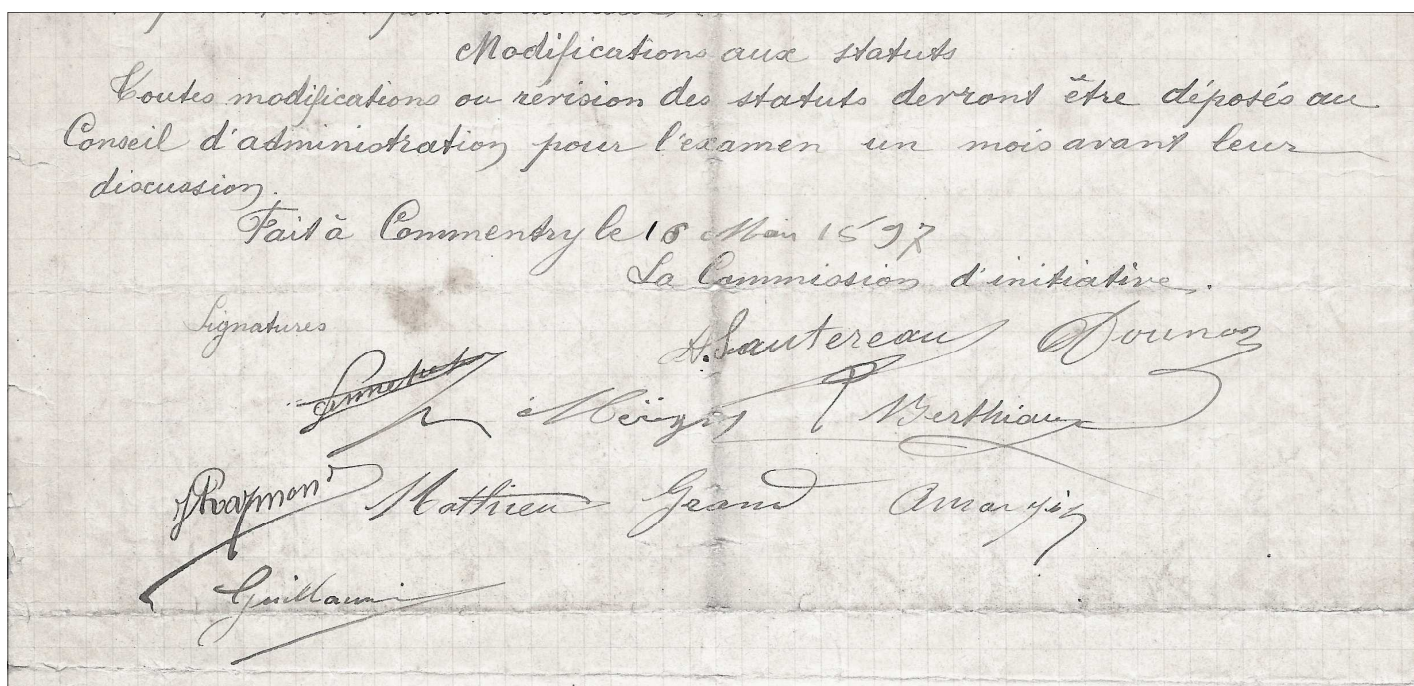 Modifications aux statuts
Toutes modifications ou révision des statuts devront être déposés au
Conseil d'administration pour l'examen un mois avant leur
discussion.
Fait à Commentry le 16 Mai 1897
La Commission d'initiative.
Signatures
A. Sautereau Dounon
Berthiaux
Raymond Mathieu Grand
Guillaumin